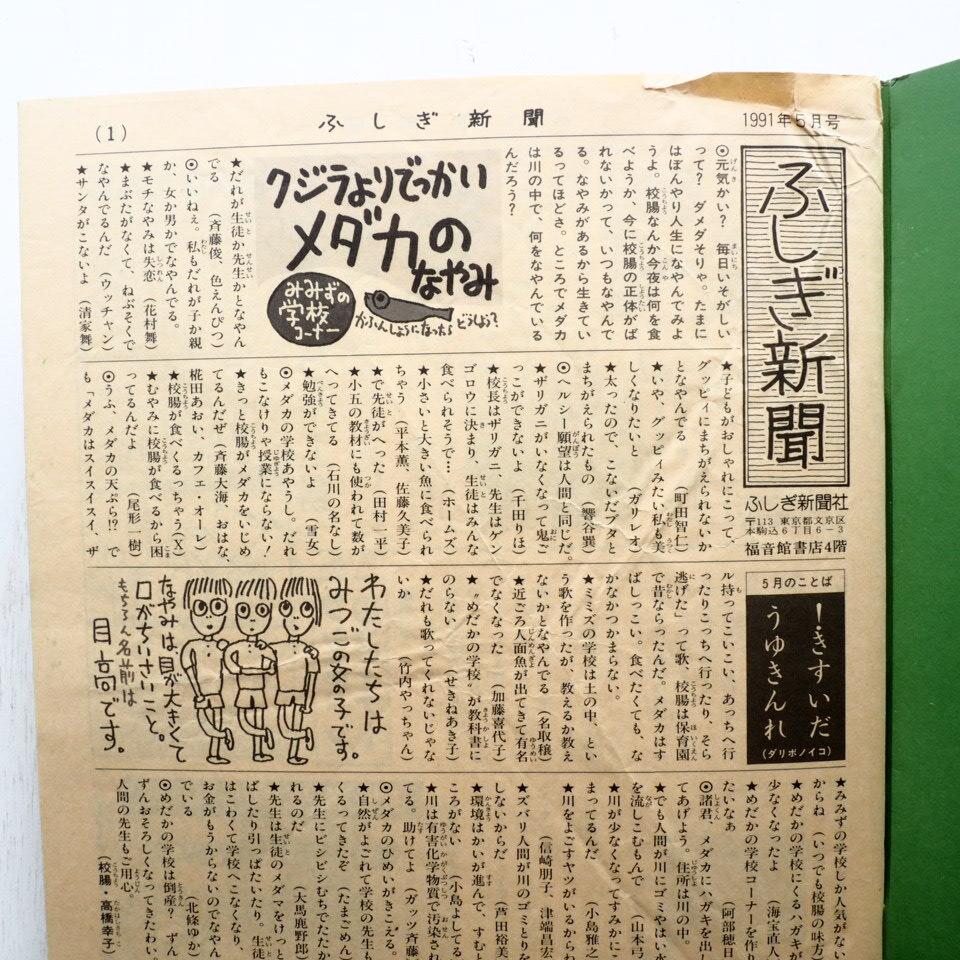 (1)
ふしぎ新聞
1991年5月号
ふしぎ新聞
ふしぎ新聞社
〒113 東京都文京区
本駒込6丁目6−3
福音館書店4階
5月のことば
！きすいだ
うゆきんれ
(ダリボノイコ)
◎元気かい？　毎日いそがしい
って？　ダメダメそりゃ。たまに
はぼんやり人生になやんでみよ
うよ。校腸なんか今夜は何を食
べようか、今に校腸の正体がば
れないかって、いつもなやんで
る。なやみがあるから生きてい
るってほどさ。ところでメダカ
は川の中で、何をなやんでいる
んだろう？
クジラよりでっかい
メダカの
なやみ
みみずの
学校
コーナー
かふんしょうになったら どうしよう？
★だれが生徒か先生かとなやん
でる　（斉藤俊、色えんぴつ）
◎いいねぇ。私もだれが子か親
か、女か男かでなやんでる。
★モチなやみは失恋（花村舞）
★まぶたがなくて、ねぶそくで
なやんでるんだ（ウッチャン）
★サンタがこないよ（清家舞）
★子どもがおしゃれにこって、
グッピィにまちがえられないか
となやんでる　（町田智仁）
★いや、グッピィみたい私も美
しくなりたいと　（ガリレオ）
★太ったので、こないだブタと
まちがえられたもの（響谷巽）
◎ヘルシー願望は人間と同じだ。
★ザリガニがいなくなって鬼ご
っこができないよ　（千田りほ）
★校長はザリガニ、先生はゲン
ゴロウに決まり、生徒はみんな
食べられそうで…（ホームズ）
★小さいと大きい魚に食べられ
ちゃう（平本薫、佐藤久美子）
★で先徒がへった（田村一平）
★小五の教材にも使われて数が
へってきてる（石川の名なし）
★勉強ができないよ　（雪女）
◎メダカの学校あやうし。だれ
もこなけりゃ授業にならない！
★きっと校腸がメダカをいじめ
てるんだぜ（斉藤大海、おはな、
椛田あおい、カフェ・オーレ）
★校腸が食べくるっちゃう（X）
★むやみに校腸が食べるから困
ってるんだよ　（尾形　樹）
◎うふ、メダカの天ぷら!?　で
も「メダカはスイスイスイ、ザ
ル持ってこいこい、あっちへ行
ったりこっちへ行ったり、そら
逃げた」って歌、校腸は保育園
で昔ならったんだ。メダカはす
ばしっこい。食べたくても、な
かなかつかまらない。
★ミミズの学校は土の中、とい
う歌を作ったが、教えるか教え
ないかとなやんでる（名取穣）
★近ごろ人面魚が出てきて有名
でなくなった　（加藤喜代子）
★〝めだかの学校〟が教科書に
のらない　（せきねあき子）
★だれも歌ってくれないじゃな
いか　（竹内やっちゃん）
わたしたちは
みつごの女の子です。
なやみは、目が大きくて
口がちいさいこと。
もちろん名前は
目高です。
★みみずの学校しか人気がない
からね（いつでも校腸の味方）
★めだかの学校にくるハガキが
少なくなったよ　（海宝直人
★めだかの学校コーナーを作り
たいなぁ　（阿部穂日
◎諸君、メダカにハガキを出し
てあげよう。住所は川の中。
★でも人間が川にゴミやはい水
を流しこむもんで　（山本弓
★川が少なくなってすみかにこ
まってるんだ　（小島雅之
★川をよごすヤツがいるからね
（信崎朋子、津端昌宏
★ズバリ人間が川のゴミとりを
しないからだ　（芦田裕美
★環境はかいが進んで、すむと
ころがない　（小島よしてる
★川は有害化学物質で汚染され
てる。助けてよ　（ガッツ斉藤
◎メダカのひめいがきこえる。
★自然がよごれて学校の先生も
くるってきたぞ　（たまごめん）
★先生にビシビシむちでたたか
れるのだ　（大馬鹿野郎）
★先生は生徒のメダマをけっと
ばしたり引っぱたいたり。生徒
はこわくて学校へこなくなり、
お金がもうからないのでなやん
でいる　（北條ゆか）
◎めだかの学校は倒産？　ずん
ずんおそろしくなってきたわい。
人間の先生もご用心。
（校腸・高橋幸子）